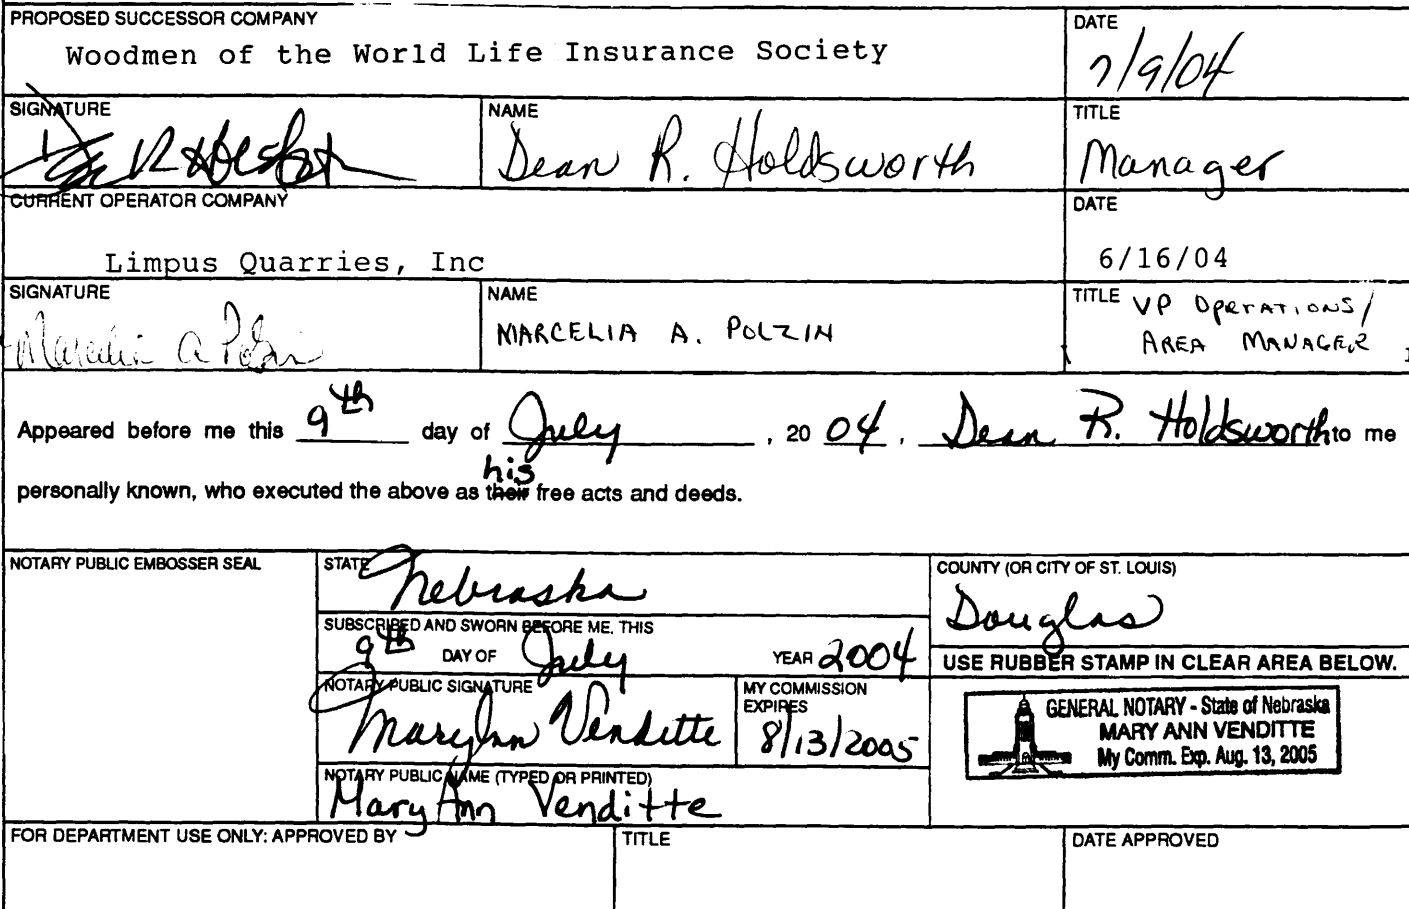 PROPOSED SUCCESSOR COMPANY
Woodmen of the World Life Insurance Society
DATE
7/9/04
SIGNATURE
NAME
Dean R. Holdsworth
TITLE
Manager
CURRENT OPERATOR COMPANY
Limpus Quarries, Inc
DATE
6/16/04
SIGNATURE
Marcelia A Polzin
NAME
MARCELIA A. POLZIN
TITLE VP OPERATIONS/
AREA MANAGER
Appeared before me this 9th day of July, 20 04, Dean R. Holdsworth to me
his
personally known, who executed the above as their free acts and deeds.
NOTARY PUBLIC EMBOSSER SEAL
STATE
Nebraska
COUNTY (OR CITY OF ST. LOUIS)
Douglas
SUBSCRIBED AND SWORN BEFORE ME, THIS
9th DAY OF July YEAR 2004
USE RUBBER STAMP IN CLEAR AREA BELOW.
NOTARY PUBLIC SIGNATURE
Mary Ann Venditte
MY COMMISSION
EXPIRES
8/13/2005
GENERAL NOTARY - State of Nebraska
MARY ANN VENDITTE
My Comm. Exp. Aug. 13, 2005
NOTARY PUBLIC NAME (TYPED OR PRINTED)
Mary Ann Venditte
FOR DEPARTMENT USE ONLY: APPROVED BY
TITLE
DATE APPROVED